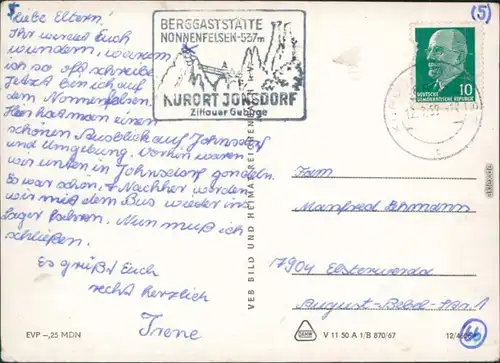 (5)
Liebe Eltern!
Ihr werdet Euch
wundern, warum
ich so oft schreibe.
Jetzt bin ich auf
dem Nonnenfelsen.
Hier hat man einen
schönen Ausblick auf Johnsdorf
und Umgebung. Vorhin waren
wir unten in Johnsdorf gondeln.
Es war schön. Nachher werden
wir mit dem Bus wieder ins
Lager fahren. Nun muß ich
schließen.
Es grüßt Euch
recht herzlich
Irene
BERGGASTSTÄTTE
NONNENFELSEN-537m
KURORT JONSDORF
Zittauer Gebirge
10
DEUTSCHE
DEMOKRATISCHE REPUBLIK
VEB BILD UND HEIMAT REICHENBACH
Fam
Manfred Ehmann
7904 Elsterwerda
August-Bebel-Str. 1
EVP -,25 MDN
V 11 50 A 1/B 870/67
(66)